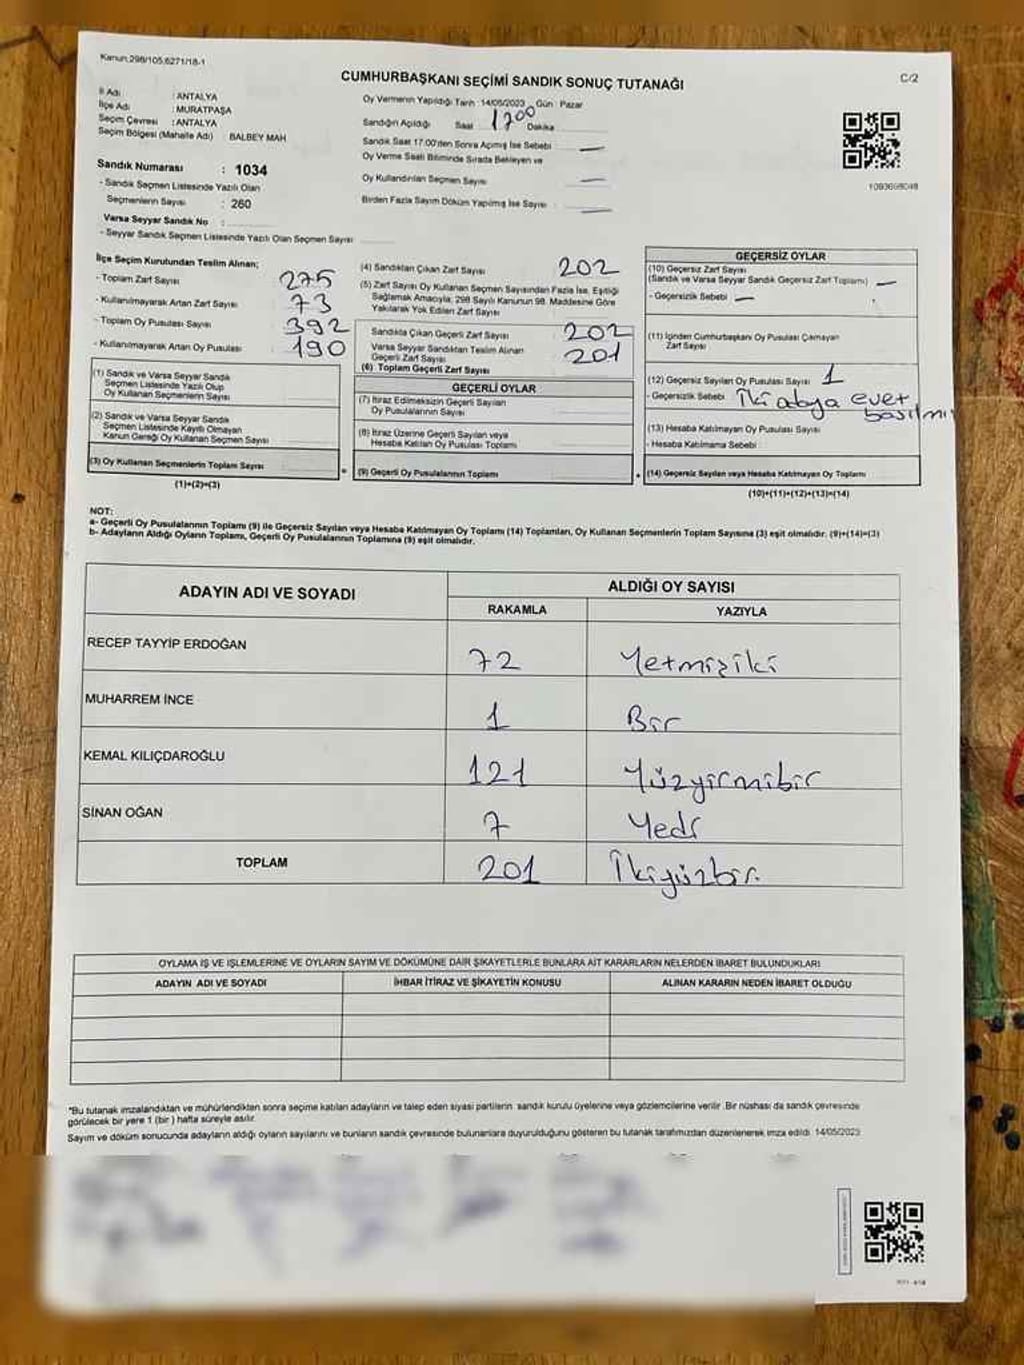 Kanun:298/105,6271/18-1
C/2
CUMHURBAŞKANI SEÇİMİ SANDIK SONUÇ TUTANAĞI
İl Adı : ANTALYA
İlçe Adı : MURATPAŞA
Seçim Çevresi : ANTALYA
Seçim Bölgesi (Mahalle Adı) BALBEY MAH
Sandık Numarası : 1034
- Sandık Seçmen Listesinde Yazılı Olan
Seçmenlerin Sayısı : 260
Varsa Seyyar Sandık No :
- Seyyar Sandık Seçmen Listesinde Yazılı Olan Seçmen Sayısı
Oy Vermenin Yapıldığı Tarih :14/05/2023 Gün : Pazar
Sandığın Açıldığı Saat 17 00 Dakika
Sandık Saat 17.00'den Sonra Açılmış İse Sebebi —
Oy Verme Saati Bitiminde Sırada Bekleyen ve
Oy Kullandırılan Seçmen Sayısı —
Birden Fazla Sayım Döküm Yapılmış İse Sayısı —
İlçe Seçim Kurulundan Teslim Alınan;
- Toplam Zarf Sayısı 275
- Kullanılmayarak Artan Zarf Sayısı 73
- Toplam Oy Pusulası Sayısı 392
- Kullanılmayarak Artan Oy Pusulası 190
(1) Sandık ve Varsa Seyyar Sandık
Seçmen Listesinde Yazılı Olup
Oy Kullanan Seçmenlerin Sayısı
(2) Sandık ve Varsa Seyyar Sandık
Seçmen Listesinde Kayıtlı Olmayan
Kanun Gereği Oy Kullanan Seçmen Sayısı
(3) Oy Kullanan Seçmenlerin Toplam Sayısı
(1)+(2)=(3)
(4) Sandıktan Çıkan Zarf Sayısı 202
(5) Zarf Sayısı Oy Kullanan Seçmen Sayısından Fazla İse, Eşitliği
Sağlamak Amacıyla; 298 Sayılı Kanunun 98. Maddesine Göre
Yakılarak Yok Edilen Zarf Sayısı
Sandıkta Çıkan Geçerli Zarf Sayısı 202
Varsa Seyyar Sandıktan Teslim Alınan
Geçerli Zarf Sayısı 201
(6) Toplam Geçerli Zarf Sayısı
GEÇERLİ OYLAR
(7) İtiraz Edilmeksizin Geçerli Sayılan
Oy Pusulalarının Sayısı
(8) İtiraz Üzerine Geçerli Sayılan veya
Hesaba Katılan Oy Pusulası Toplamı
(9) Geçerli Oy Pusulalarının Toplamı
GEÇERSİZ OYLAR
(10) Geçersiz Zarf Sayısı
(Sandık ve Varsa Seyyar Sandık Geçersiz Zarf Toplamı) —
- Geçersizlik Sebebi —
(11) İçinden Cumhurbaşkanı Oy Pusulası Çıkmayan
Zarf Sayısı
(12) Geçersiz Sayılan Oy Pusulası Sayısı 1
- Geçersizlik Sebebi İki adaya evet
basılmış
(13) Hesaba Katılmayan Oy Pusulası Sayısı
- Hesaba Katılmama Sebebi
(14) Geçersiz Sayılan veya Hesaba Katılmayan Oy Toplamı
(10)+(11)+(12)+(13)=(14)
NOT:
a- Geçerli Oy Pusulalarının Toplamı (9) ile Geçersiz Sayılan veya Hesaba Katılmayan Oy Toplamı (14) Toplamları, Oy Kullanan Seçmenlerin Toplam Sayısına (3) eşit olmalıdır. (9)+(14)=(3)
b- Adayların Aldığı Oyların Toplamı, Geçerli Oy Pusulalarının Toplamına (9) eşit olmalıdır.
ADAYIN ADI VE SOYADI ALDIĞI OY SAYISI
RAKAMLA YAZIYLA
RECEP TAYYİP ERDOĞAN 72 Yetmişiki
MUHARREM İNCE 1 Bir
KEMAL KILIÇDAROĞLU 121 Yüzyirmibir
SİNAN OĞAN 7 Yedi
TOPLAM 201 İkiyüzbir
OYLAMA İŞ VE İŞLEMLERİNE VE OYLARIN SAYIM VE DÖKÜMÜNE DAİR ŞİKAYETLERLE BUNLARA AİT KARARLARIN NELERDEN İBARET BULUNDUKLARI
ADAYIN ADI VE SOYADI İHBAR İTİRAZ VE ŞİKAYETİN KONUSU ALINAN KARARIN NEDEN İBARET OLDUĞU
*Bu tutanak imzalandıktan ve mühürlendikten sonra seçime katılan adayların ve talep eden siyasi partilerin sandık kurulu üyelerine veya gözlemcilerine verilir. Bir nüshası da sandık çevresinde
görülecek bir yere 1 (bir) hafta süreyle asılır.
Sayım ve döküm sonucunda adayların aldığı oyların sayılarını ve bunların sandık çevresinde bulunanlara duyurulduğunu gösteren bu tutanak tarafımızdan düzenlenerek imza edildi. 14/05/2023